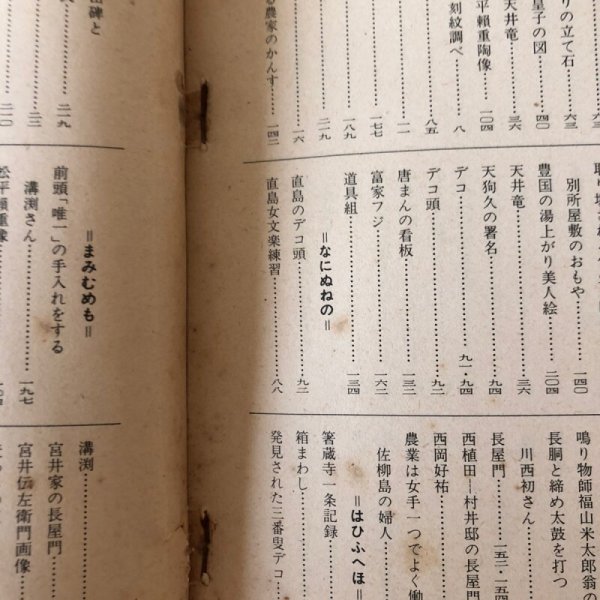 六三
りの立て石……六三
皇子の図……四〇
天井竜……三六
平頼重陶像……一〇四
刻紋調べ……八
……八五
……一一
……一七七
……一八九
……二一九
……一六
る農家のかんす……一四二
別所屋敷のおもや……一四〇
豊国の湯上がり美人絵……二〇四
天井竜……三六
天狗久の署名……九四
デコ……九一・九四
デコ頭……九二
唐まんの看板……一三二
富家フジ……一六二
道具組……一三四
＝なにぬねの＝
直島のデコ頭……九二
直島女文楽練習……八八
鳴り物師福山米太郎翁の
長胴と締め太鼓を打つ
川西初さん
長屋門……一五二・一五四
西植田―村井邸の長屋門
西岡好祐
農業は女手一つでよく働
佐柳島の婦人
＝はひふへほ＝
箸蔵寺一条記録
箱まわし
発見された三番叟デコ
碑と……二一九
前頭「唯一」の手入れをする
溝渕さん……一九七
松平頼重像
＝まみむめも＝
溝渕
宮井家の長屋門
宮井伝左衛門画像